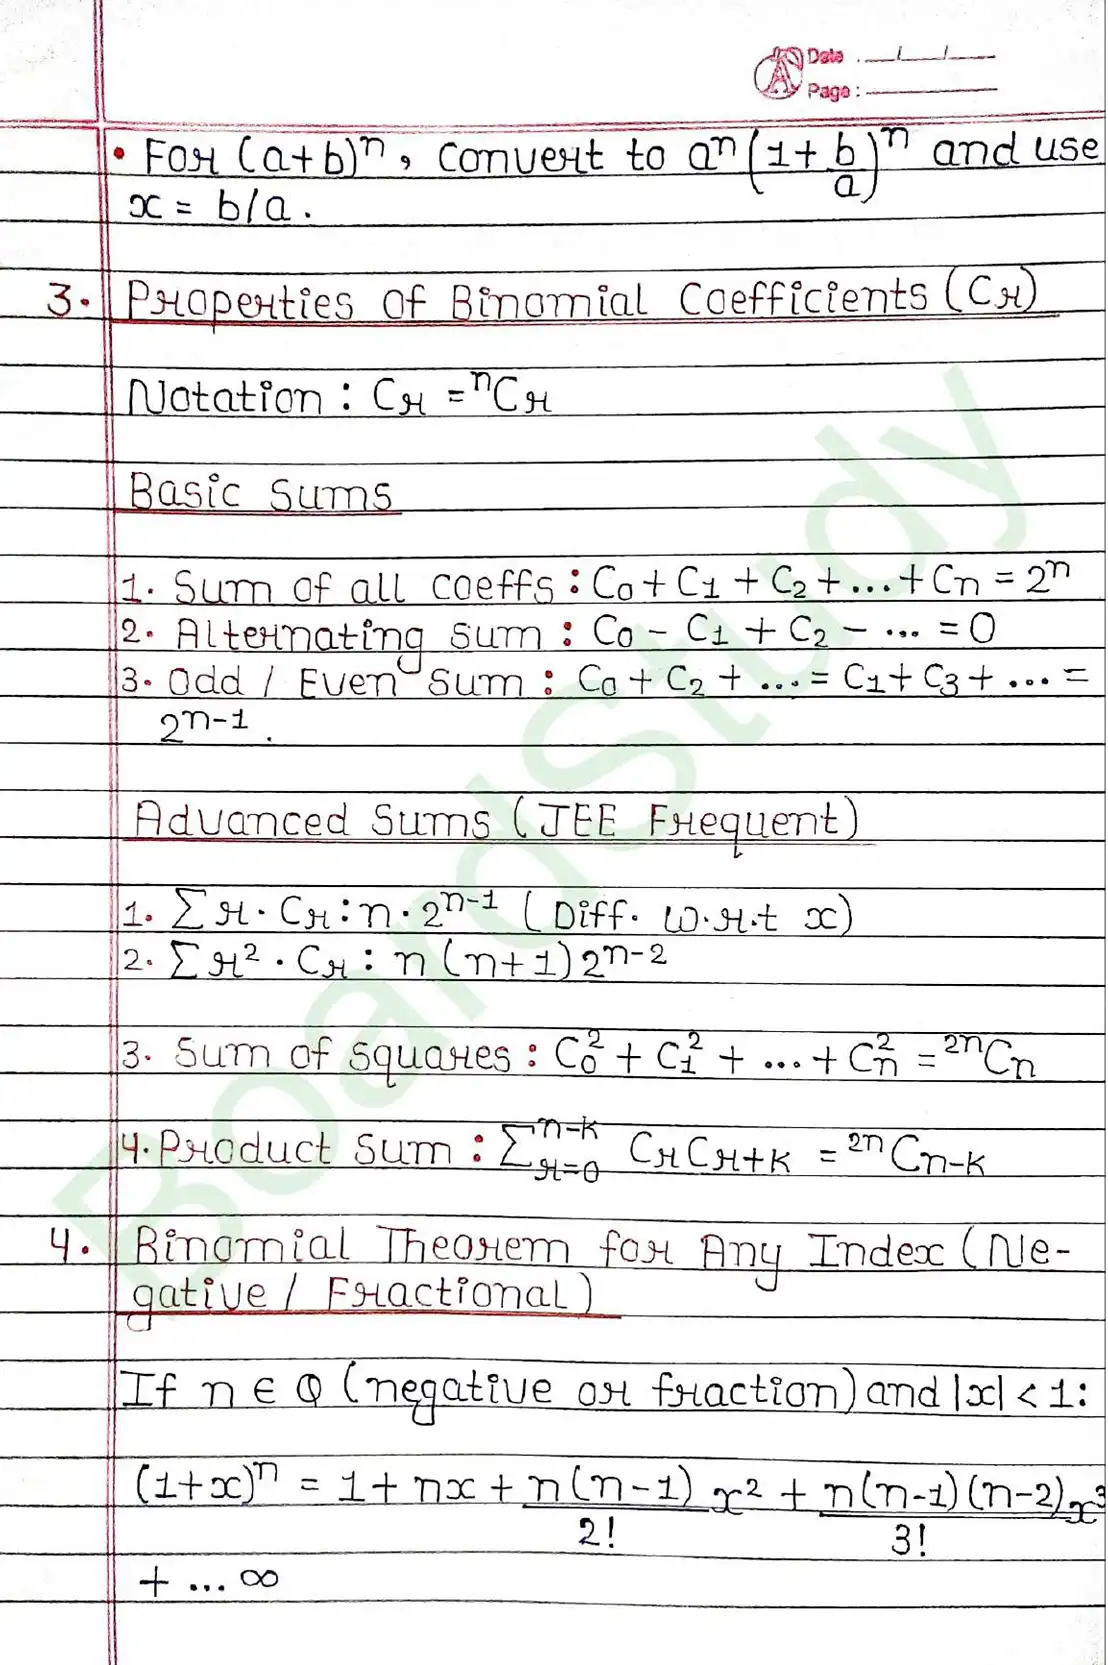 Date : __/__/__
Page : ______
• For (a+b)ⁿ, convert to aⁿ(1+b/a)ⁿ and use
x = b/a.
3. Properties of Binomial Coefficients (Cr)
Notation : Cr = ⁿCr
Basic Sums
1. Sum of all coeffs : C0 + C1 + C2 + ... + Cn = 2ⁿ
2. Alternating sum : C0 - C1 + C2 - ... = 0
3. Odd / Even Sum : C0 + C2 + ... = C1 + C3 + ... =
2ⁿ⁻¹.
Advanced Sums (JEE Frequent)
1. ∑r · Cr : n · 2ⁿ⁻¹ (Diff. w.r.t x)
2. ∑r² · Cr : n(n+1)2ⁿ⁻²
3. Sum of squares : C0² + C1² + ... + Cn² = ²ⁿCn
4. Product Sum : ∑_{r=0}^{n-k} CrCr+k = ²ⁿCn-k
4. Binomial Theorem for Any Index (Ne-
gative / Fractional)
If n ∈ Q (negative or fraction) and |x| < 1:
(1+x)ⁿ = 1 + nx + n(n-1)/2! x² + n(n-1)(n-2)/3! x³
+ ... ∞
BoardStudy